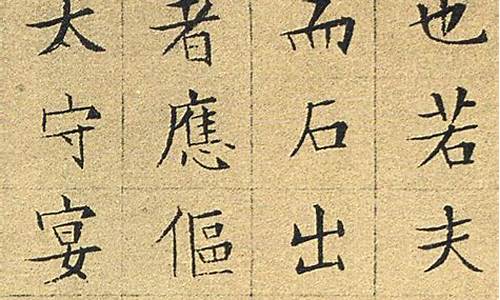 也若夫
而石出
者應傴
太守宴